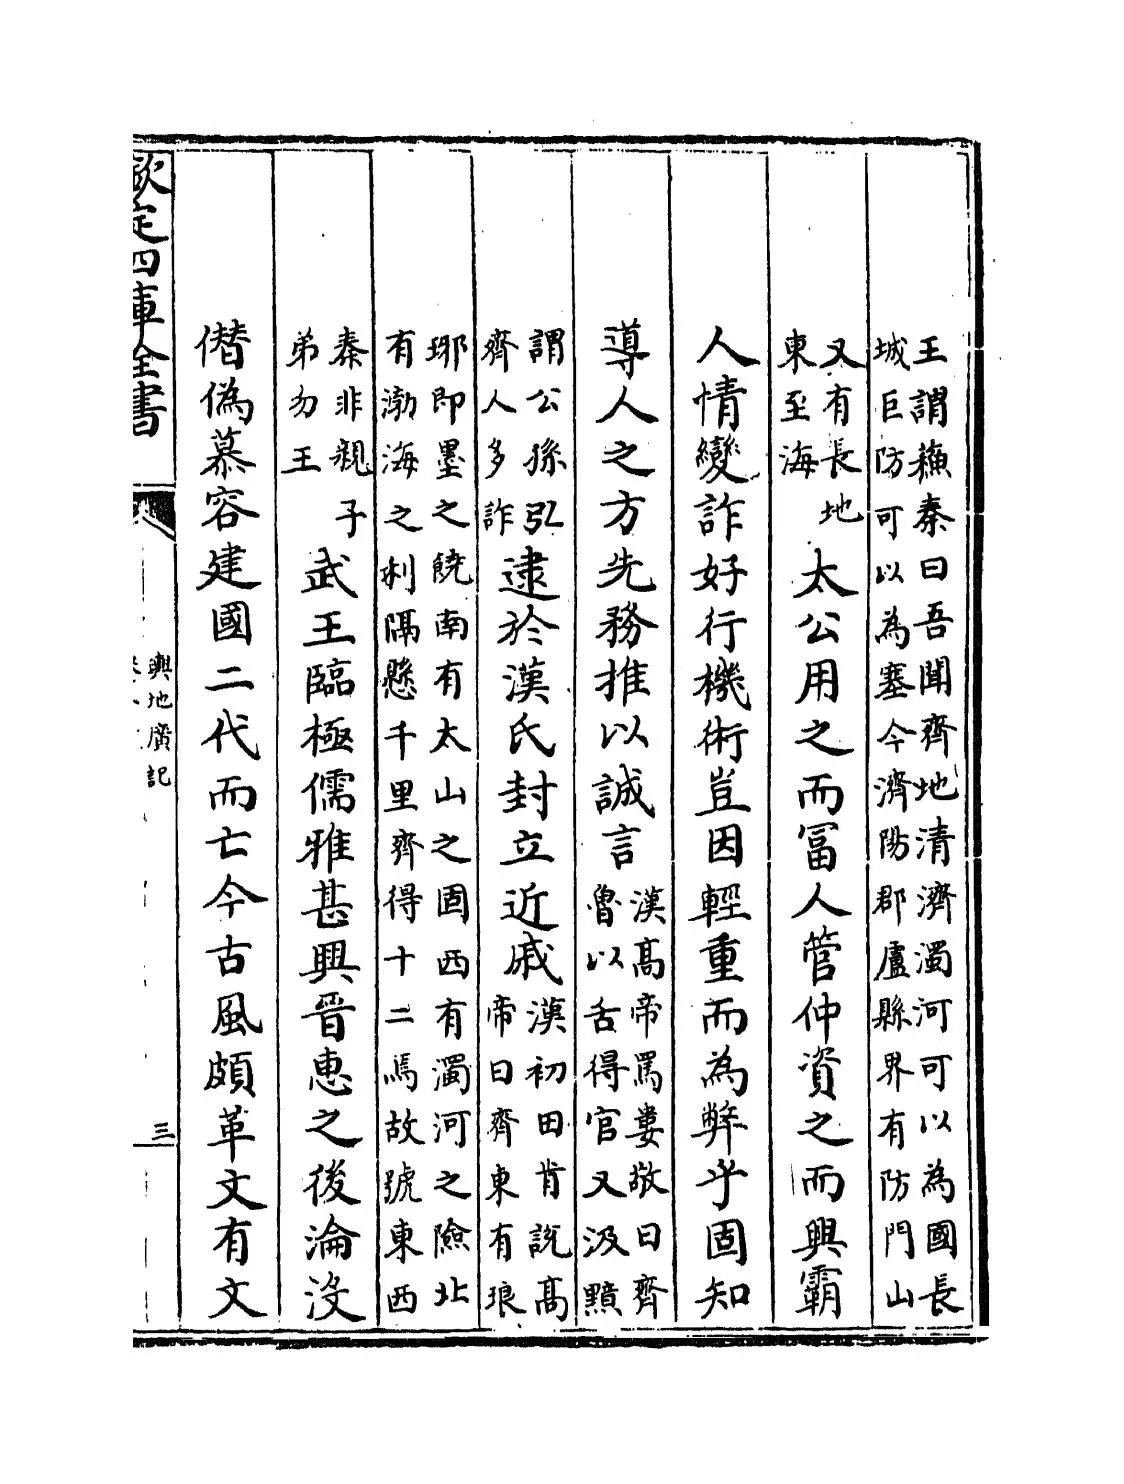 王謂蘇秦曰吾聞齊地清濟濁河可以為國長
城巨防可以為塞今濟陽郡盧縣界有防門山
又有長地
東至海
太公用之而冨人管仲資之而興霸
人情變詐好行機術豈因輕重而為弊乎固知
導人之方先務推以誠言
漢高帝罵婁敬曰齊
魯以舌得官又汲黯
謂公孫弘
齊人多詐
逮於漢氏封立近戚
漢初田肯說高
帝曰齊東有琅
琊即墨之饒南有太山之固西有濁河之險北
有渤海之利隔懸千里齊得十二焉故號東西
秦非親子
弟勿王
武王臨極儒雅甚興晉惠之後淪沒
僭偽慕容建國二代而亡今古風頗革文有文
欽定四庫全書
輿地廣記
三